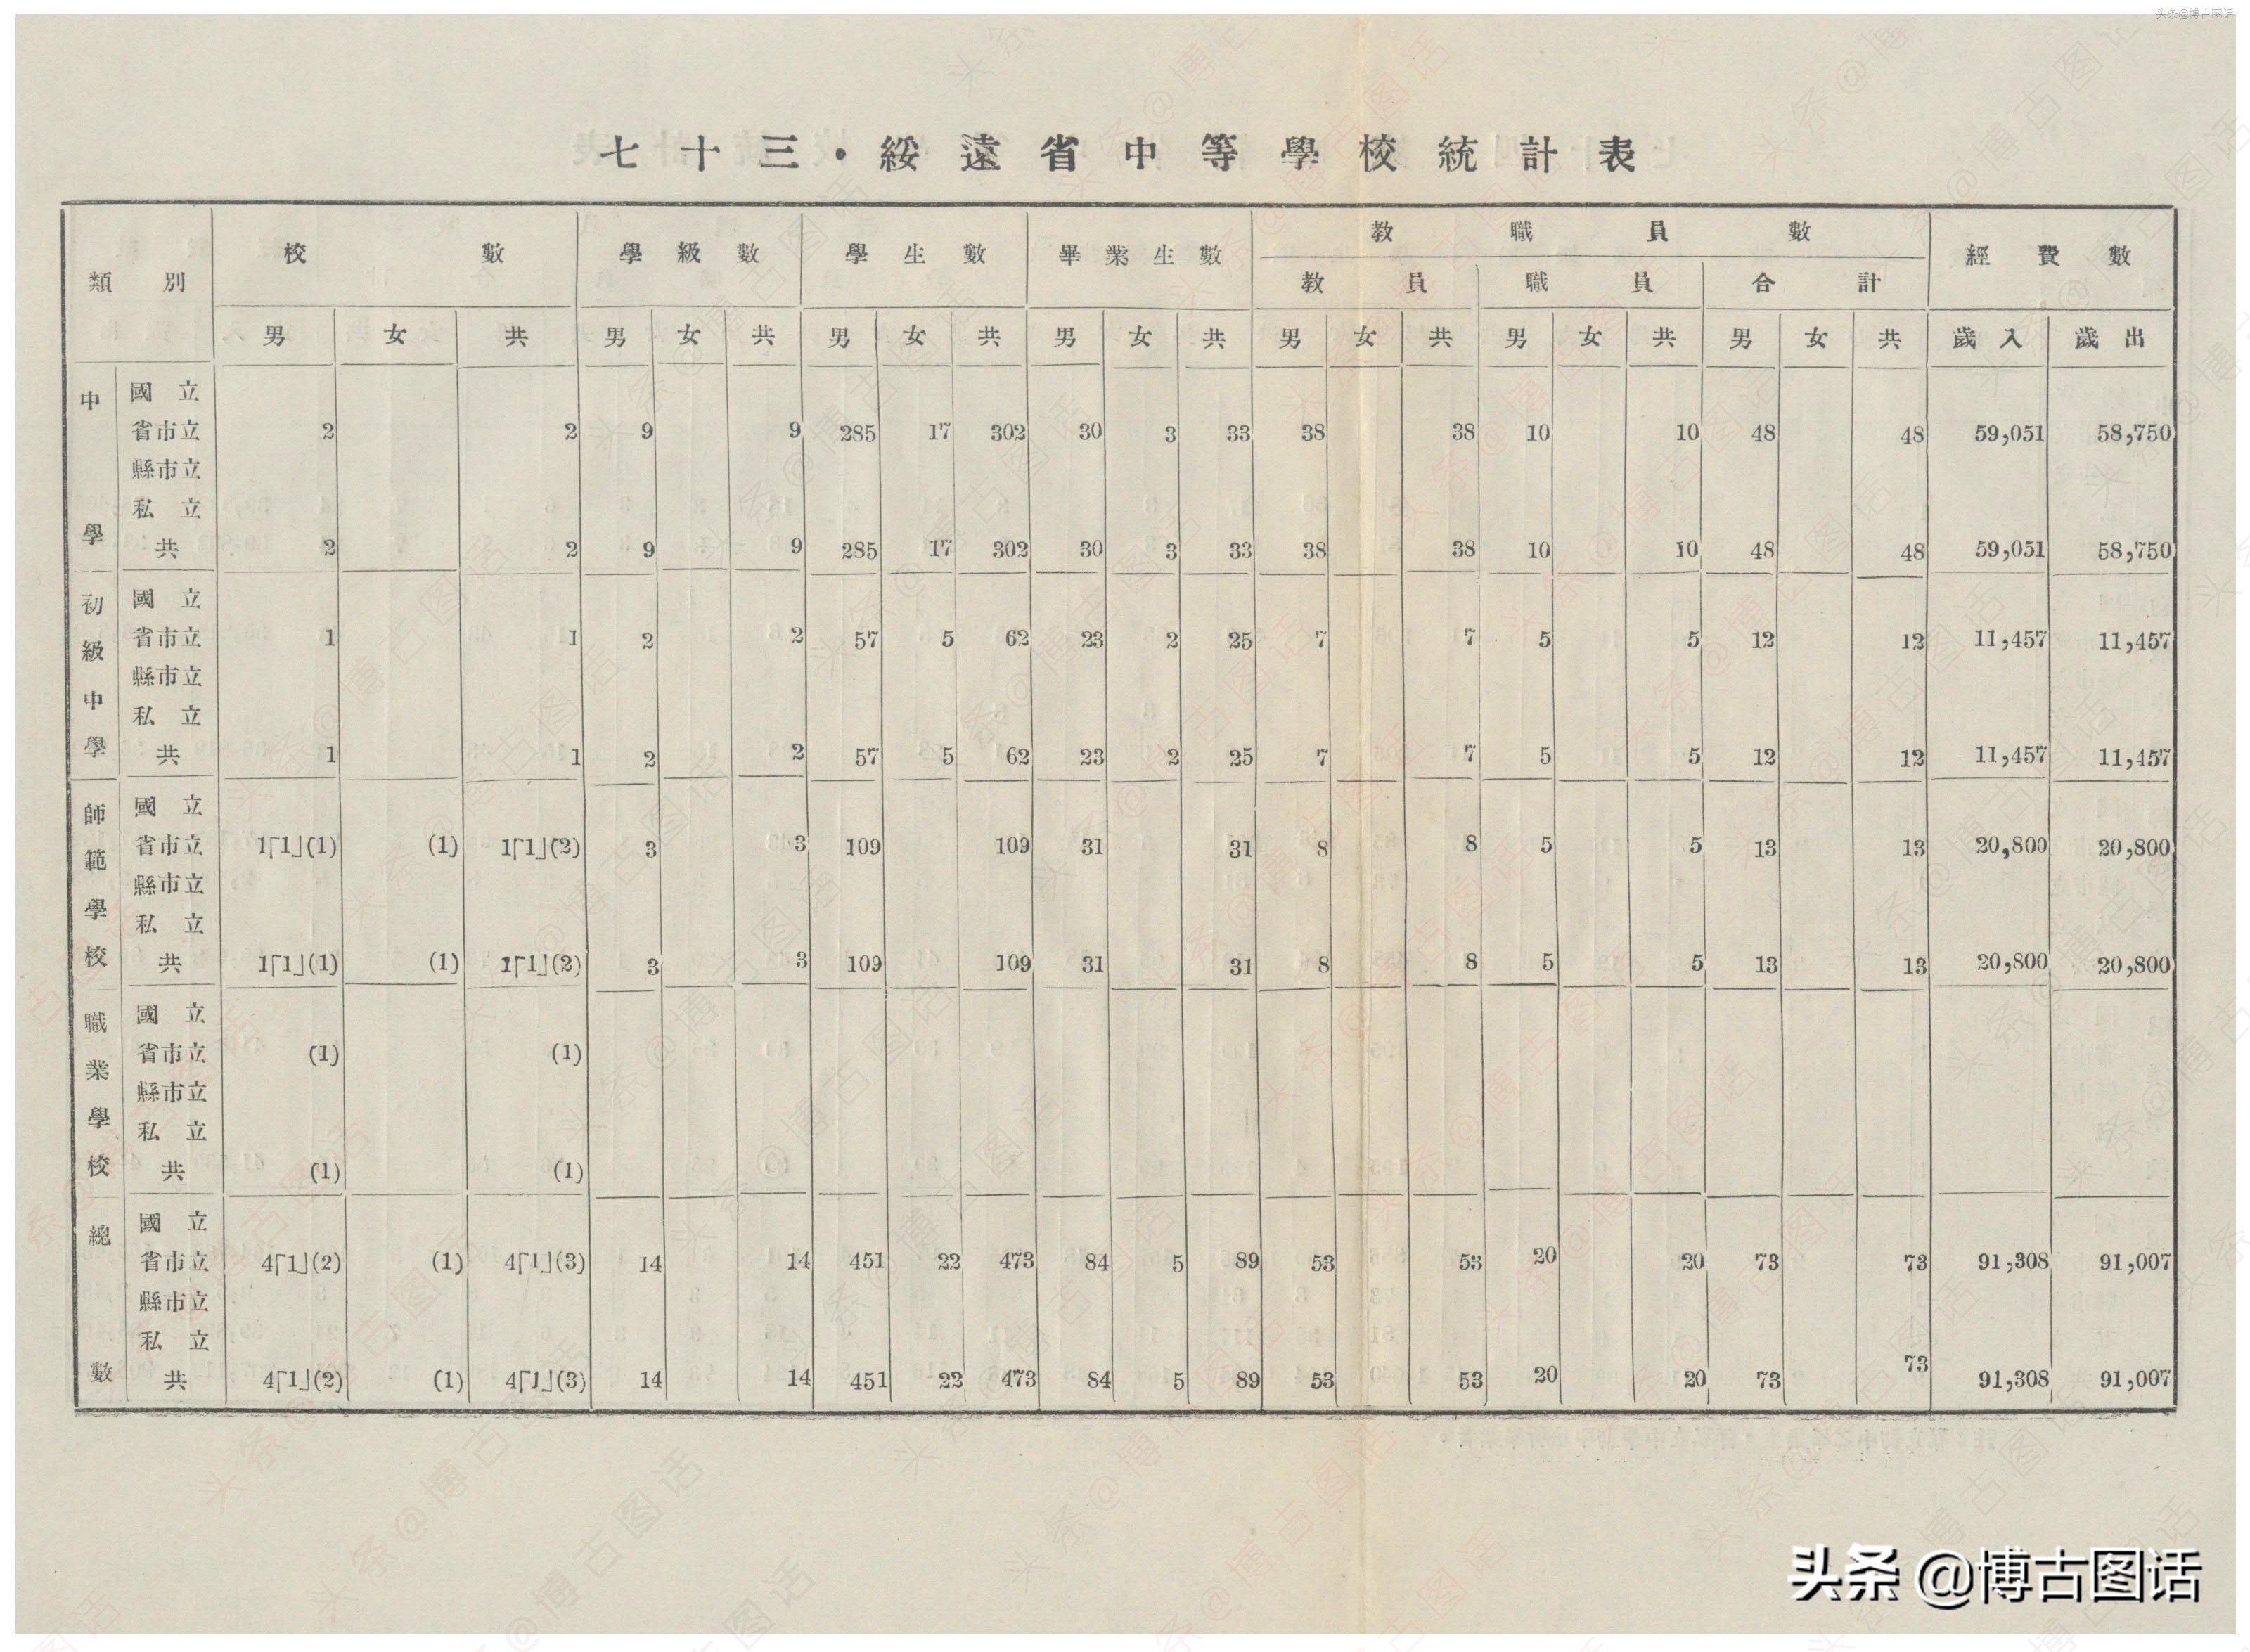 头条@博古图话
七十三・綏遠省中等學校統計表
類別 校數 學級數 學生數 畢業生數 教職員數 經費數
教員 職員 合計
男 女 共 男 女 共 男 女 共 男 女 共 男 女 共 男 女 共 男 女 共 歲入 歲出
中學
國立
省市立 2 2 9 9 285 17 302 30 3 33 38 38 10 10 48 48 59,051 58,750
縣市立
私立
共 2 2 9 9 285 17 302 30 3 33 38 38 10 10 48 48 59,051 58,750
初級中學
國立
省市立 1 1 2 2 57 5 62 23 2 25 7 7 5 5 12 12 11,457 11,457
縣市立
私立
共 1 1 2 2 57 5 62 23 2 25 7 7 5 5 12 12 11,457 11,457
師範學校
國立
省市立 1「1」(1) (1) 1「1」(2) 3 3 109 109 31 31 8 8 5 5 13 13 20,800 20,800
縣市立
私立
共 1「1」(1) (1) 1「1」(2) 3 3 109 109 31 31 8 8 5 5 13 13 20,800 20,800
職業學校
國立
省市立 (1) (1)
縣市立
私立
共 (1) (1)
總數
國立
省市立 4「1」(2) (1) 4「1」(3) 14 14 451 22 473 84 5 89 53 53 20 20 73 73 91,308 91,007
縣市立
私立
共 4「1」(2) (1) 4「1」(3) 14 14 451 22 473 84 5 89 53 53 20 20 73 73 91,308 91,007
头条 @博古图话